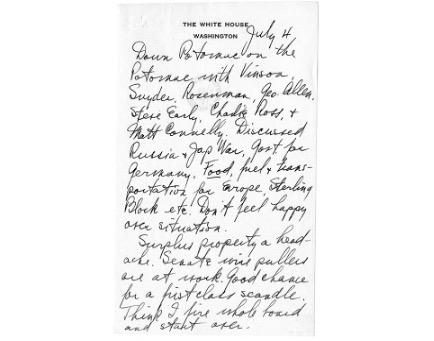 THE WHITE HOUSE
WASHINGTON
July 4
Down Potomac on the
Potomac with Vinson,
Snyder, Rosenman, Geo Allen,
Steve Early, Charlie Ross, +
Matt Connelly. Discussed
Russia + Jap War, Govt for
Germany, Food, fuel + trans-
portation for Europe, Sterling
Block etc. Don't feel happy
over situation.
Surplus property a head-
ache. Senate wire pullers
are at work. Good chance
for a first class scandle.
Think I fire whole board
and start over.